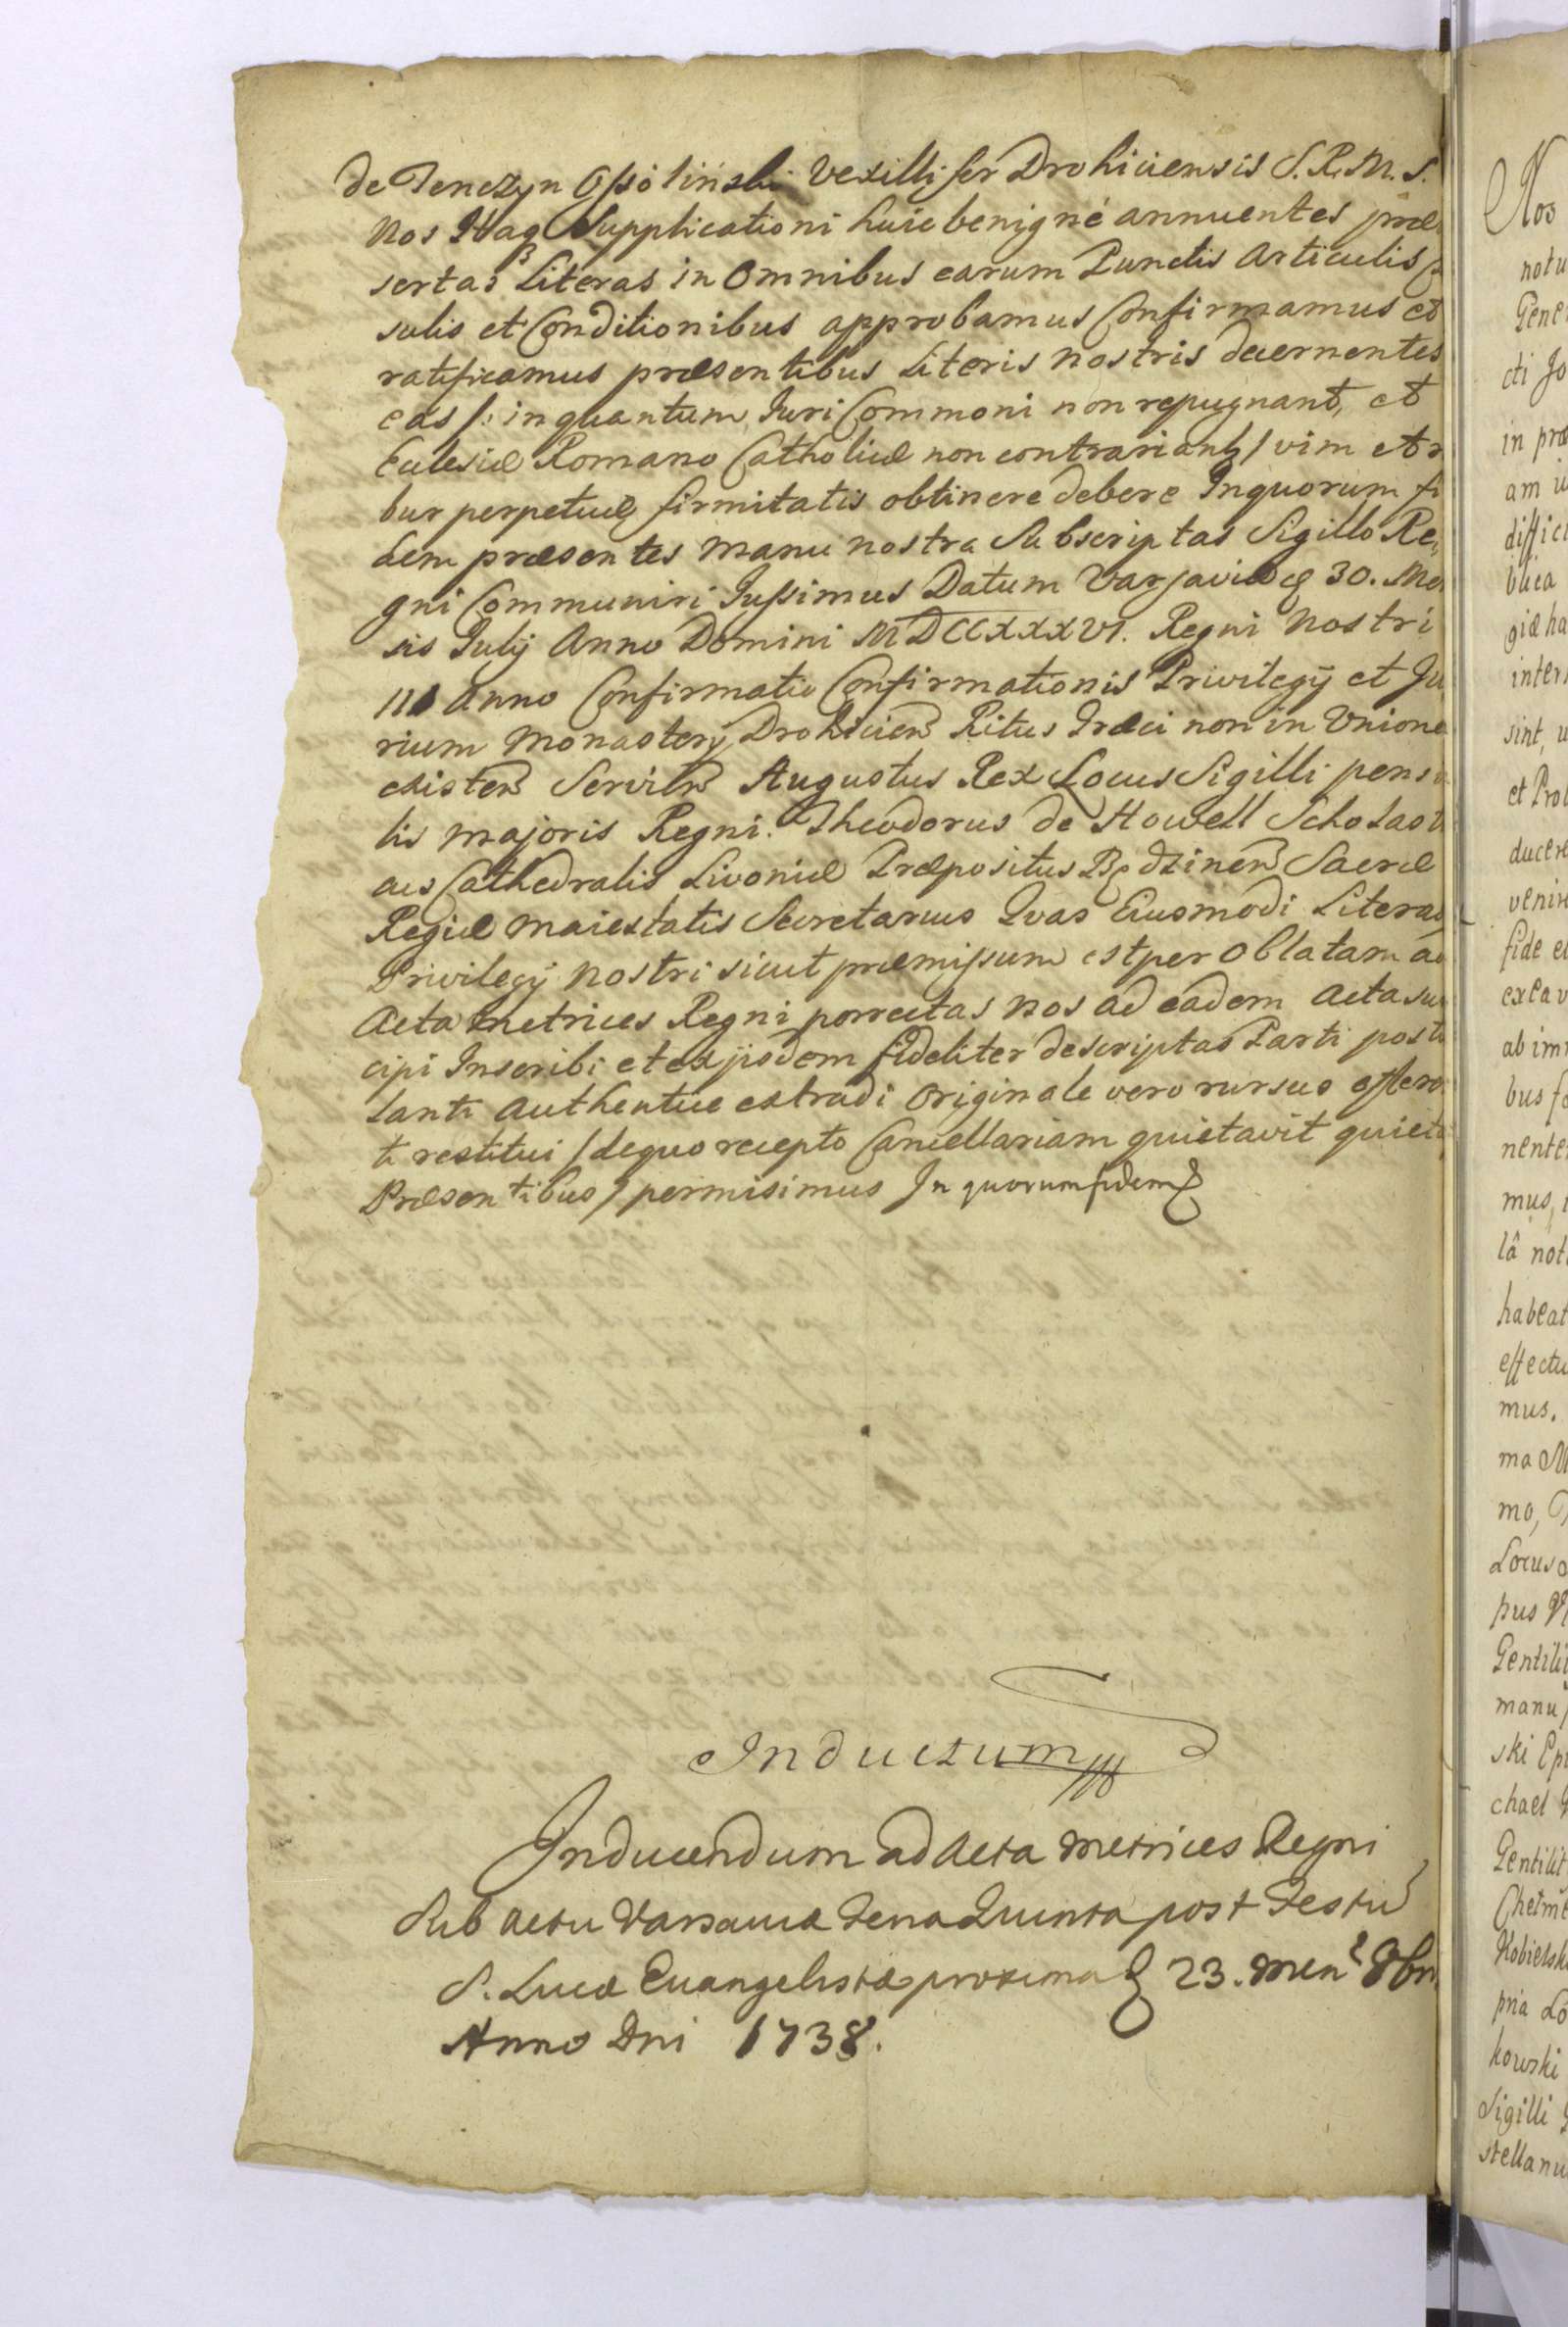 de Tenczyn Ossoliński Vexillifer Drohiciensis S. R. M. S.
Nos Itaq3 Supplicationi huic benigné annuentes præ
sertas Literas in Omnibus earum Punctis Articulis
sulis et Conditionibus approbamus Confirmamus et
ratificamus præsentibus Literis nostris decernentes
eas /: in quantum Juri Commoni non repugnant, et
Eclesiæ Romano Catholicæ non contrariant / vim et r
bur perpetuæ firmitatis obtinere debere Inquorum fi
dem præsentes manu nostra Subscriptas Sigillo Re,
gni Communiri Jussimus Datum Varsaviæ 30. Me
sis Julij Anno Domini MDCCXXXVI. Regni Nostri
III Anno Confirmatio Confirmationis Privilegij et Ju
rium Monasterij Drohicien Ritus Græci non in Unione
existen Servien Augustus Rex Locus Sigilli pensi
lis majoris Regni. Theodorus de Howell Scholasti
cus Cathedralis Livoniæ Præpositus Będzinen Sacræ
Regiæ Maiestatis Secretarius Qvas Eiusmodi Literas
Privilegij nostri sicut præmissum est per Oblatam ad
Acta Metrices Regni porrectas Nos ad eadem Acta sus
cipi Inscribi et ex ijsdem fideliter descriptas Parti postu
lanti Authentice extradi Originale vero rursus offeren
ti restitui / dequo recepto Cancellariam quietavit quieta
Præsentibus / permisimus In quorum fidem

Inductum
Inducendum ad Acta Metrices Regni
Sub actu Varsaviæ Feria Quinta post Festu
S. Lucæ Evangelistæ proxima 23. Men 8br
Anno Dni 1738.

Nos
notu
Gene
cti Jo
in præ
am
diffici
blica
giæ ha
inter
sint, u
et Pro
ducere
venire
fide et
excav
ab im
bus fa
nente
mus,
lâ not
habeat
effectu
mus.
ma M
mo,
Locus
pus
Gentili
manu
ski Ep
chael
Gentilit
Chełm
Kobielsk
pria Lo
kowski
Sigilli
stellanu